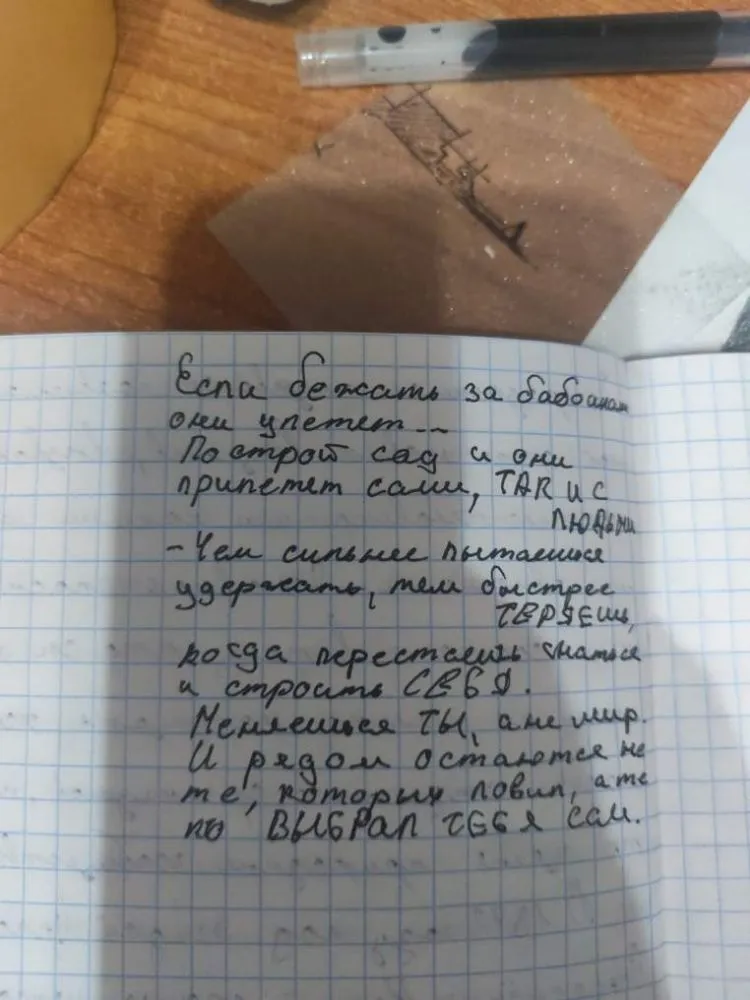 Если бежать за бабочкам
они улетет...
Построй сад и они
прилетет сами, ТАК и с
людьми
- Чем сильнее пытаешься
удержать, тем быстрее
ТЕРЯЕШЬ,
когда перестаешь гнаться
и строить СЕБЯ.
Меняешься ТЫ, а не мир.
И рядом остаются не
те, которых ловил, а те
кто ВЫБРАЛ ТЕБЯ сам.